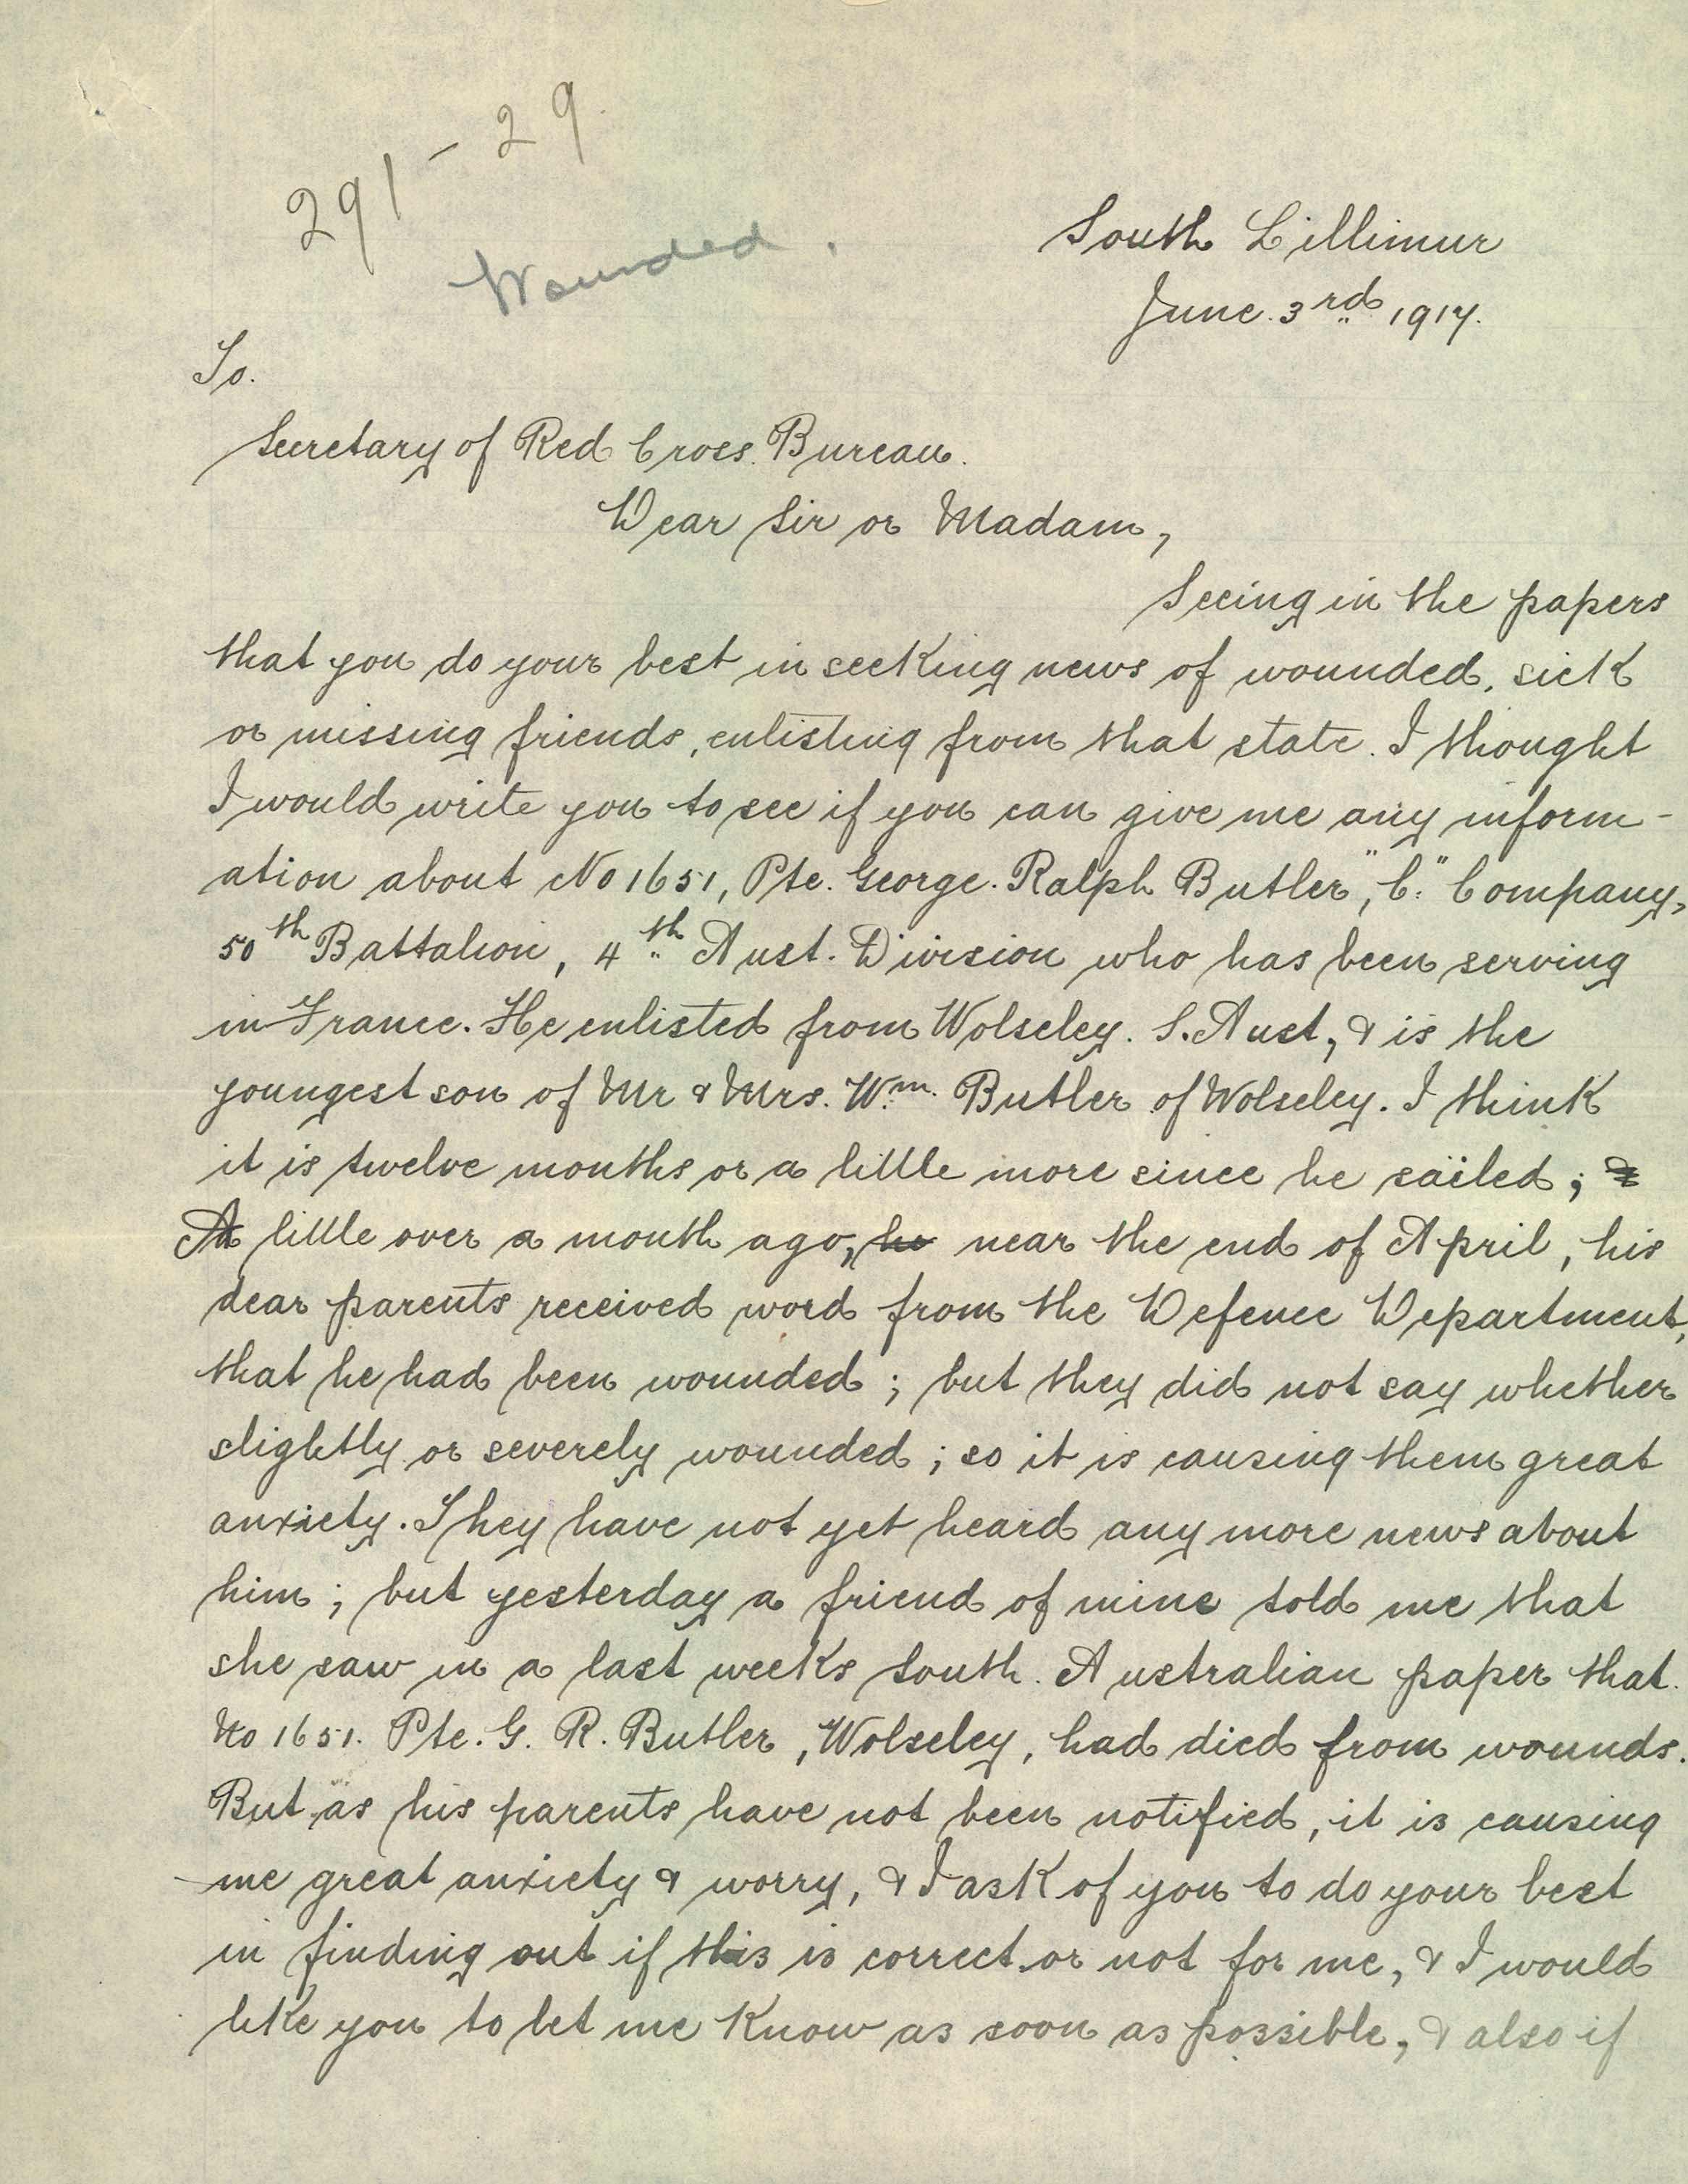 291 - 29.
Wounded.
South Lillimur
June. 3rd 1917.
To.
Secretary of Red Cross. Bureau.
Dear Sir or Madam,
Seeing in the papers
that you do your best in seeking news of wounded, sick
or missing friends, enlisting from that state. I thought
I would write you to see if you can give me any inform-
ation about No 1651, Pte. George. Ralph Butler, "C." Company,
50th Battalion, 4th Aust. Division who has been serving
in France. He enlisted from Wolseley. S. Aust, & is the
youngest son of Mr & Mrs. Wm. Butler of Wolseley. I think
it is twelve months or a little more since he sailed; &
A little over a month ago, he near the end of April, his
dear parents received word from the Defence Department,
that he had been wounded; but they did not say whether
slightly or severely wounded; so it is causing them great
anxiety. They have not yet heard any more news about
him; but yesterday a friend of mine told me that
she saw in a last weeks South. Australian paper that.
No 1651. Pte. G. R. Butler, Wolseley, had died from wounds.
But as his parents have not been notified, it is causing
me great anxiety & worry, & I ask of you to do your best
in finding out if this is correct or not for me, & I would
like you to let me know as soon as possible, & also if